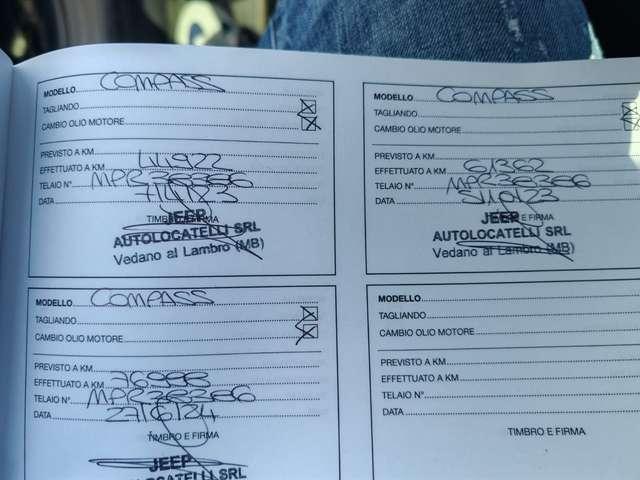 MODELLO COMPASS
TAGLIANDO
CAMBIO OLIO MOTORE
PREVISTO A KM
EFFETTUATO A KM
TELAIO N°
DATA
TIMBRO E FIRMA
JEEP
AUTOLOCATELLI SRL
Vedano al Lambro (MB)
MODELLO COMPASS
TAGLIANDO
CAMBIO OLIO MOTORE
PREVISTO A KM
EFFETTUATO A KM 61362
TELAIO N°
DATA
TIMBRO E FIRMA
JEEP
AUTOLOCATELLI SRL
Vedano al Lambro (MB)
MODELLO COMPASS
TAGLIANDO
CAMBIO OLIO MOTORE
PREVISTO A KM
EFFETTUATO A KM
TELAIO N°
DATA
TIMBRO E FIRMA
JEEP
AUTOLOCATELLI SRL
MODELLO
TAGLIANDO
CAMBIO OLIO MOTORE
PREVISTO A KM
EFFETTUATO A KM
TELAIO N°
DATA
TIMBRO E FIRMA